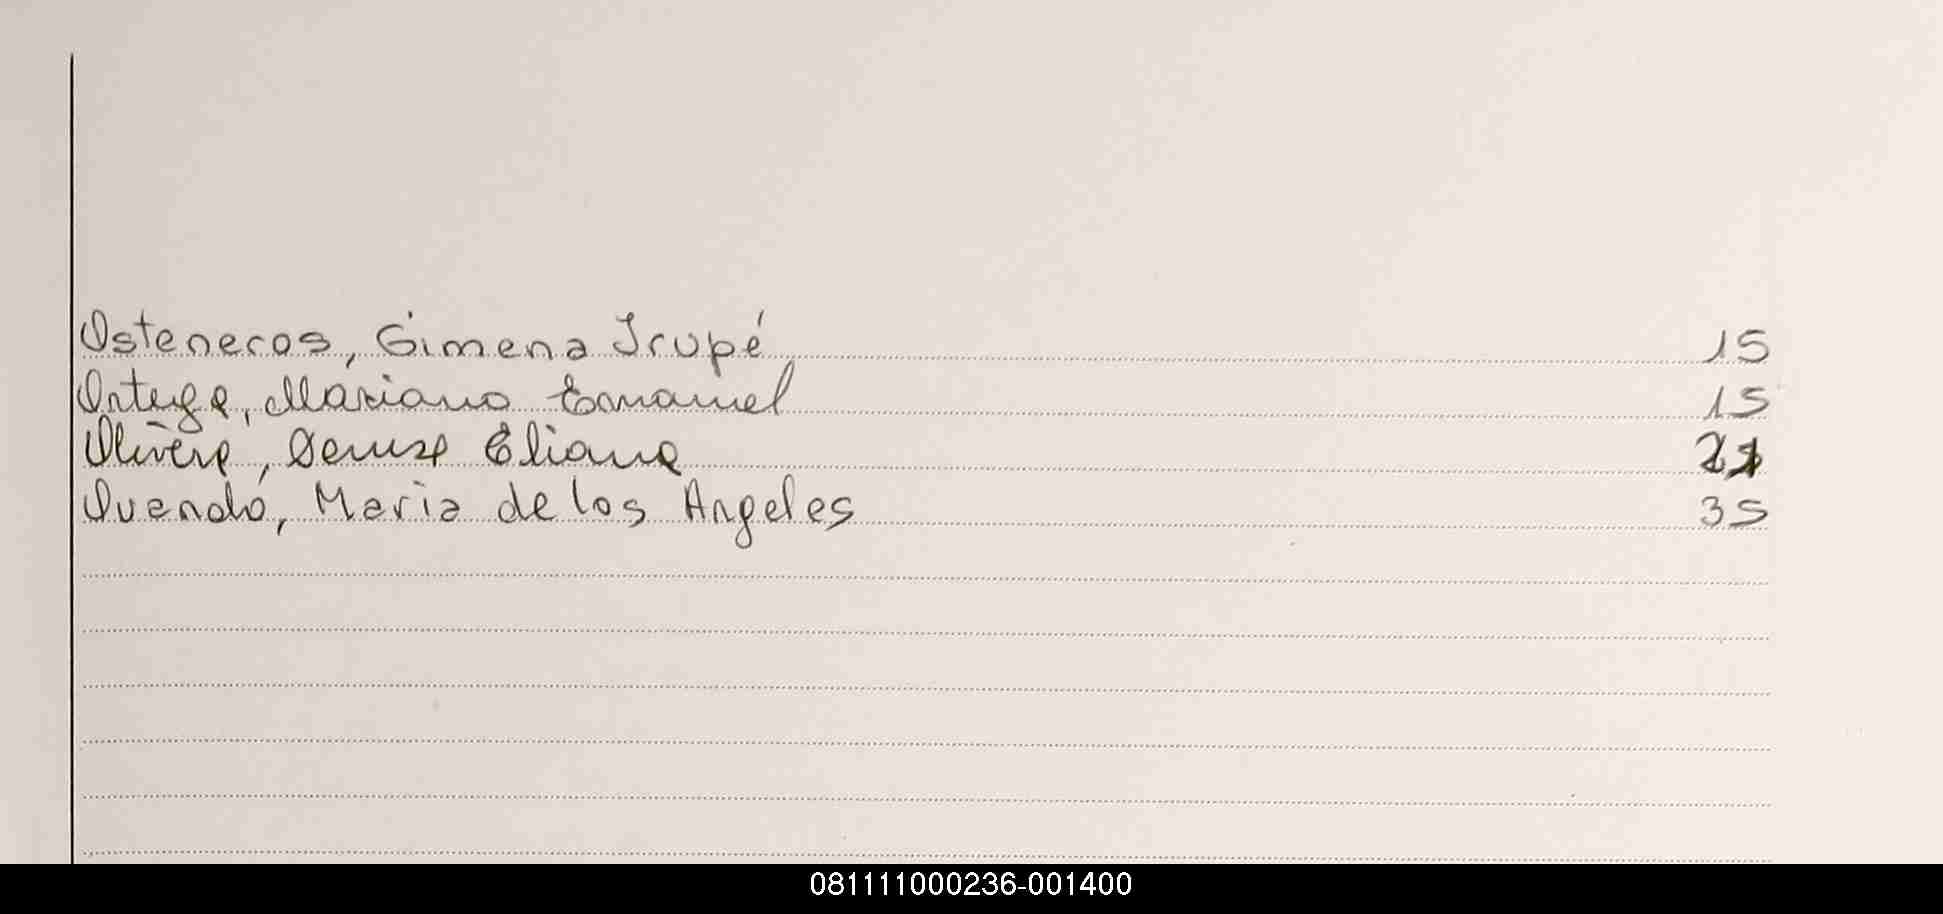 Osteneros, Gimena Irupé 15
Ortega, Mariano Emanuel 15
Olivera, Denise Eliana 21
Ovando, Maria de los Angeles 35
081111000236-001400